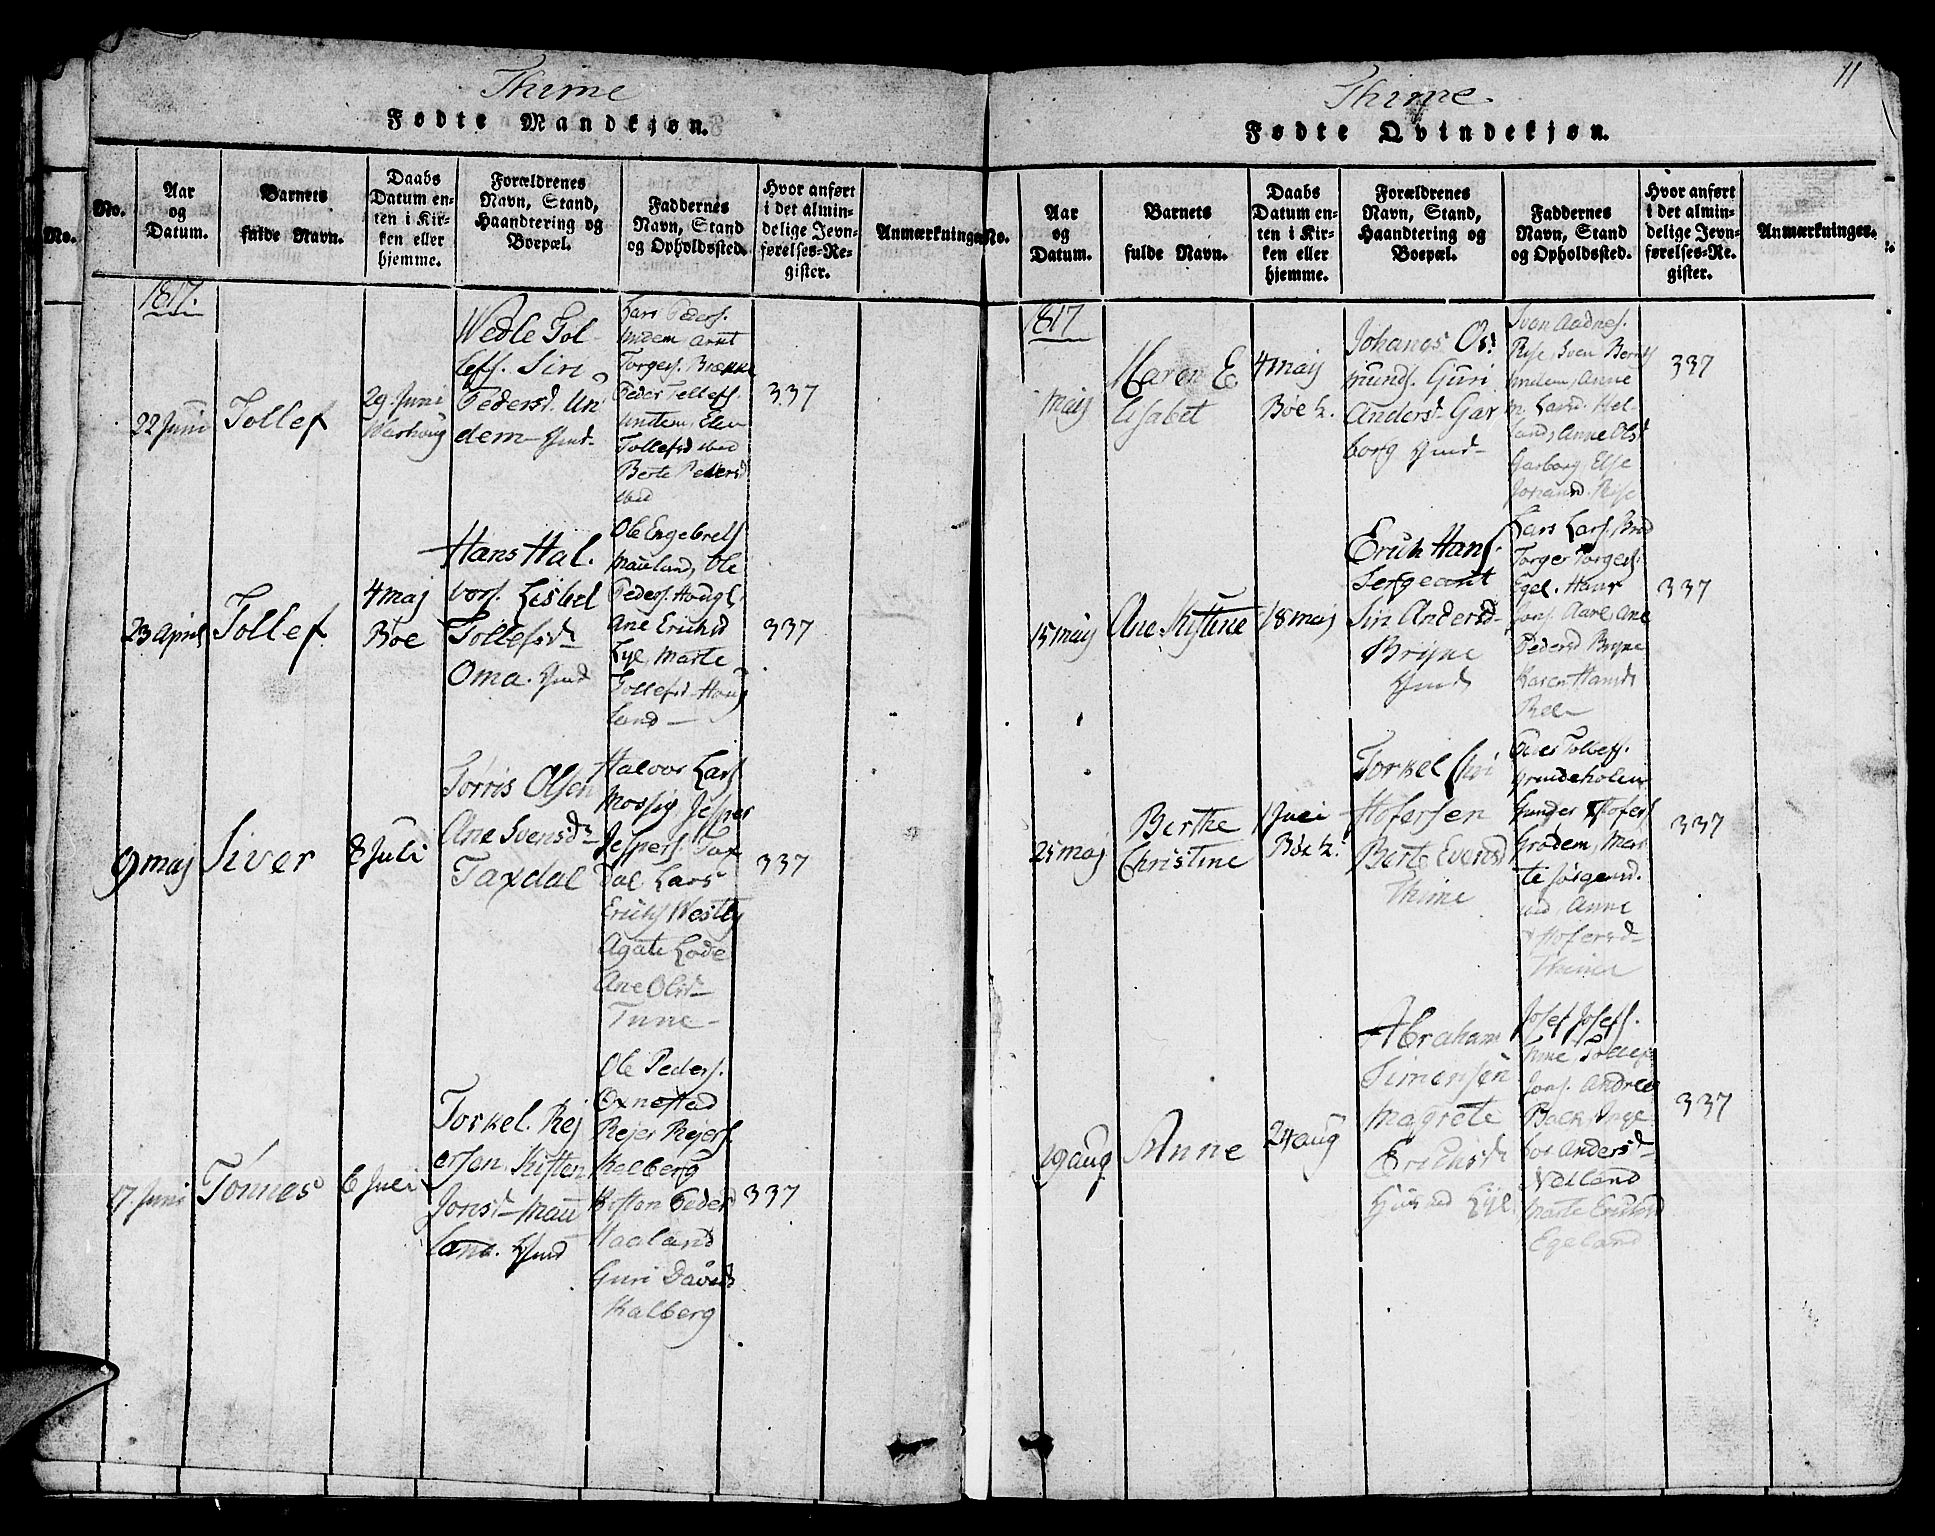 Thime
Fødte Mandkjøn.
No.
No.
Aar
og
Datum.
Barnets
fulde Navn.
Daabs
Datum en-
ten i Kir-
ken eller
hjemme.
Forældrenes
Navn, Stand,
Haandtering og
Boepæl.
Faddernes
Navn, Stand
og Opholdssted.
Hvor anført
i det almin-
delige Jevn-
førelses-Re-
gister.
Anmærkninger.
1817.
22 Juni
Tollef
29. Juni
Warhoug
Wedle Tol
lefs. Siri
Pedersd. Un
dem
Lars Peders.
undem Arnt
Torgers. Brække
Peder Tollefs.
undem, Elen
Tollefsd ibid
Berte Pedersd
ibid
337
23 April
Tollef
4 maj
Boe
Hans Hal
vors. Lisbet
Tollefsd
Oma.
Ole Engebrets
Maûland, Ole
Peders. Haugl,
Ane Erichsd
Lye, Marte
Tollefsd Haug
land
337
9 maj
Siver
8 Juli
Torris Olsen
Ane Svensd
Taxdal
Halvor Lars
Mossig Jesper
Jespers. Tax
dal Lars
Erichs Westly
Agate Lode
Ane Olsd
Tune
337
17 Juni
Tonnes
6 Juli
Torkel. Rej
ersen, Kisten
Jonsd. Mau
land.
Ole Peders.
Oxnestad
Rejer Rejers
Kalberg
Kisten Peders
Haaland
Guri Davids
Kalberg
337
11
Thime
Fødte Qvindekjøn.
No.
Aar
og
Datum.
Barnets
fulde Navn.
Daabs
Datum en-
ten i Kir-
ken eller
hjemme.
Forældrenes
Navn, Stand,
Haandtering og
Boepæl.
Faddernes
Navn, Stand
og Opholdssted.
Hvor anført
i det almin-
delige Jevn-
førelses-Re-
gister.
Anmærkninger.
1817
maij
Maren E
lisabet
4 maij
Bøe k.
Johanes Os
munds. Guri
Andersd Gar
borg
Sven Aadnes.
Rise, Sven Bernts
undem, Anne
Larsd. Hel
land, Anne Olsd
Garborg Else
Johansd. Rise
337
15 maij
Ane Kistine
18 maj
Erich Hans.
Sergeant
Siri Andersd
Brijne
Lars Lars.
Torger Torgers.
Egel.
Jons. Aare, Ane
Pedersd Bryne
Karen Hansd
Ree
337
25 maj
Berthe
Christine
1 Juli
Bøe k.
Torkel Chri
stofersen
Berte Evensd
Thime
Peder Tollefs.
Grudeholen
Gunder Kstofers
Grødem, Mar
te Sörgaard.
ibid, Anne
Kstofersd
Thime
337
19 aug
Anne
24 aug
Abraham
Simensen
Magrete
Erichsd
Lye
Josef Josefs.
Time Tollef
Jons. Andreas
Back, Inge
bor Andersd
Netland
Marte Erichsd
Egeland
337